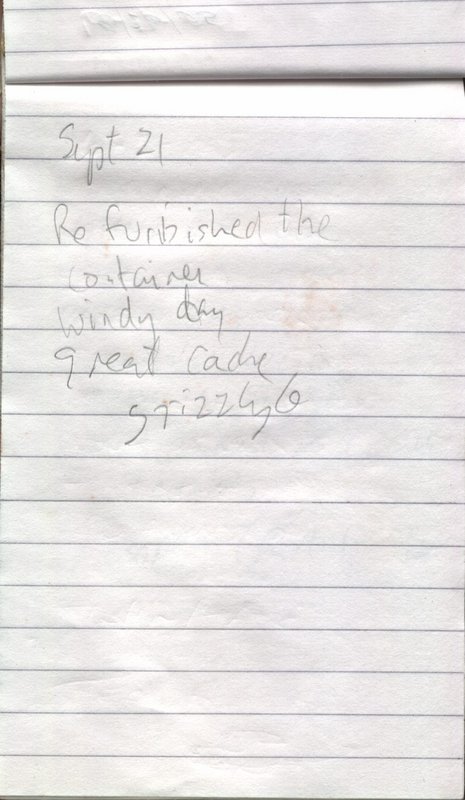 Sept 21
Refurbished the
container
windy day
great cache
grizzly6